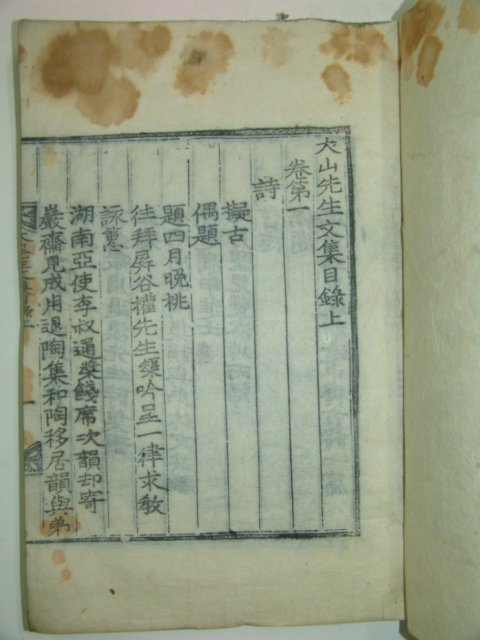 大山先生文集目錄上
卷第一
詩
擬古
偶題
題四月晚桃
往拜屛谷權先生榘吟呈一律求教
詠蕙
湖南亞使李叔通餞席次韻却寄
巖齋見成用退陶集和陶移居韻與弟